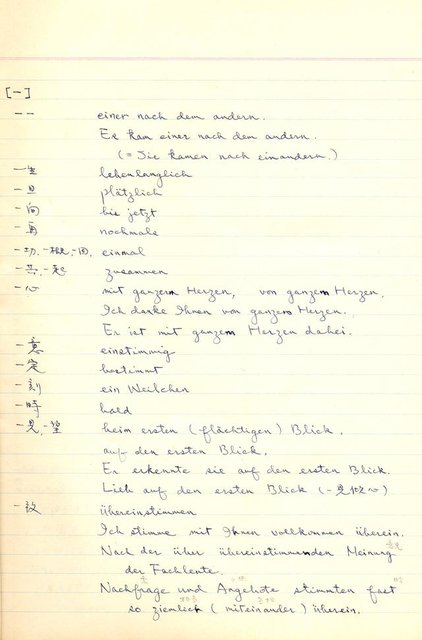 [一]
一一 einer nach dem andern.
Er kam einer nach dem andern.
(= Sie kamen nach einandern.)
一生 lebenlänglich
一旦 plötzlich
一向 bis jetzt
一再 nochmals
一切、一概、一回、 einmal
一共、一起 zusammen
一心 mit ganzem Herzen, von ganzem Herzen,
Ich danke Ihnen von ganzem Herzen.
Er ist mit ganzem Herzen dabei.
一意 einstimmig
一定 bestimmt
一刻 ein Weilchen
一時 bald
一見、一望 beim ersten (flüchtigen) Blick.
auf den ersten Blick.
Er erkennte sie auf den ersten Blick.
Lieb auf den ersten Blick (一見傾心)
一致 übereinstimmen
Ich stimme mit Ihnen vollkommen überein.
Nach der über übereinstimmenden Meinung
der Fachleute.
Nachfrage und Angebote stimmten fast
so ziemlich (miteinander) überein.